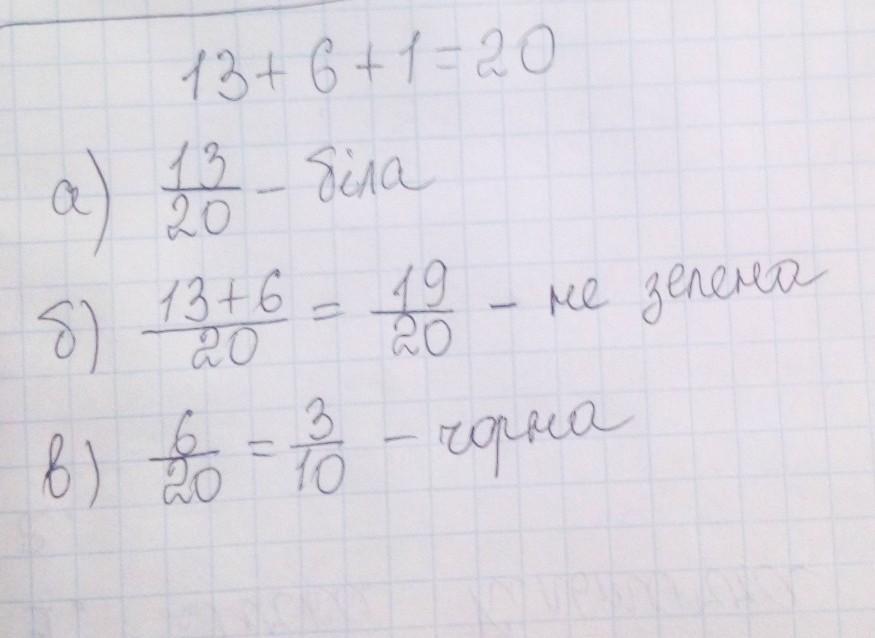 13 + 6 + 1 = 20
а) 13/20 - біла
б) 13+6/20 = 19/20 - не зелена
в) 6/20 = 3/10 - чорна